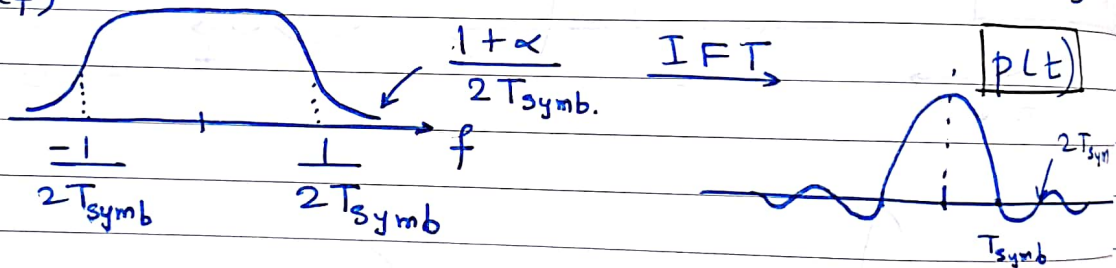 1+α
2 Tsymb.
IFT
p(t)
f
-1
2 Tsymb
1
2 Tsymb
2Tsym
Tsymb